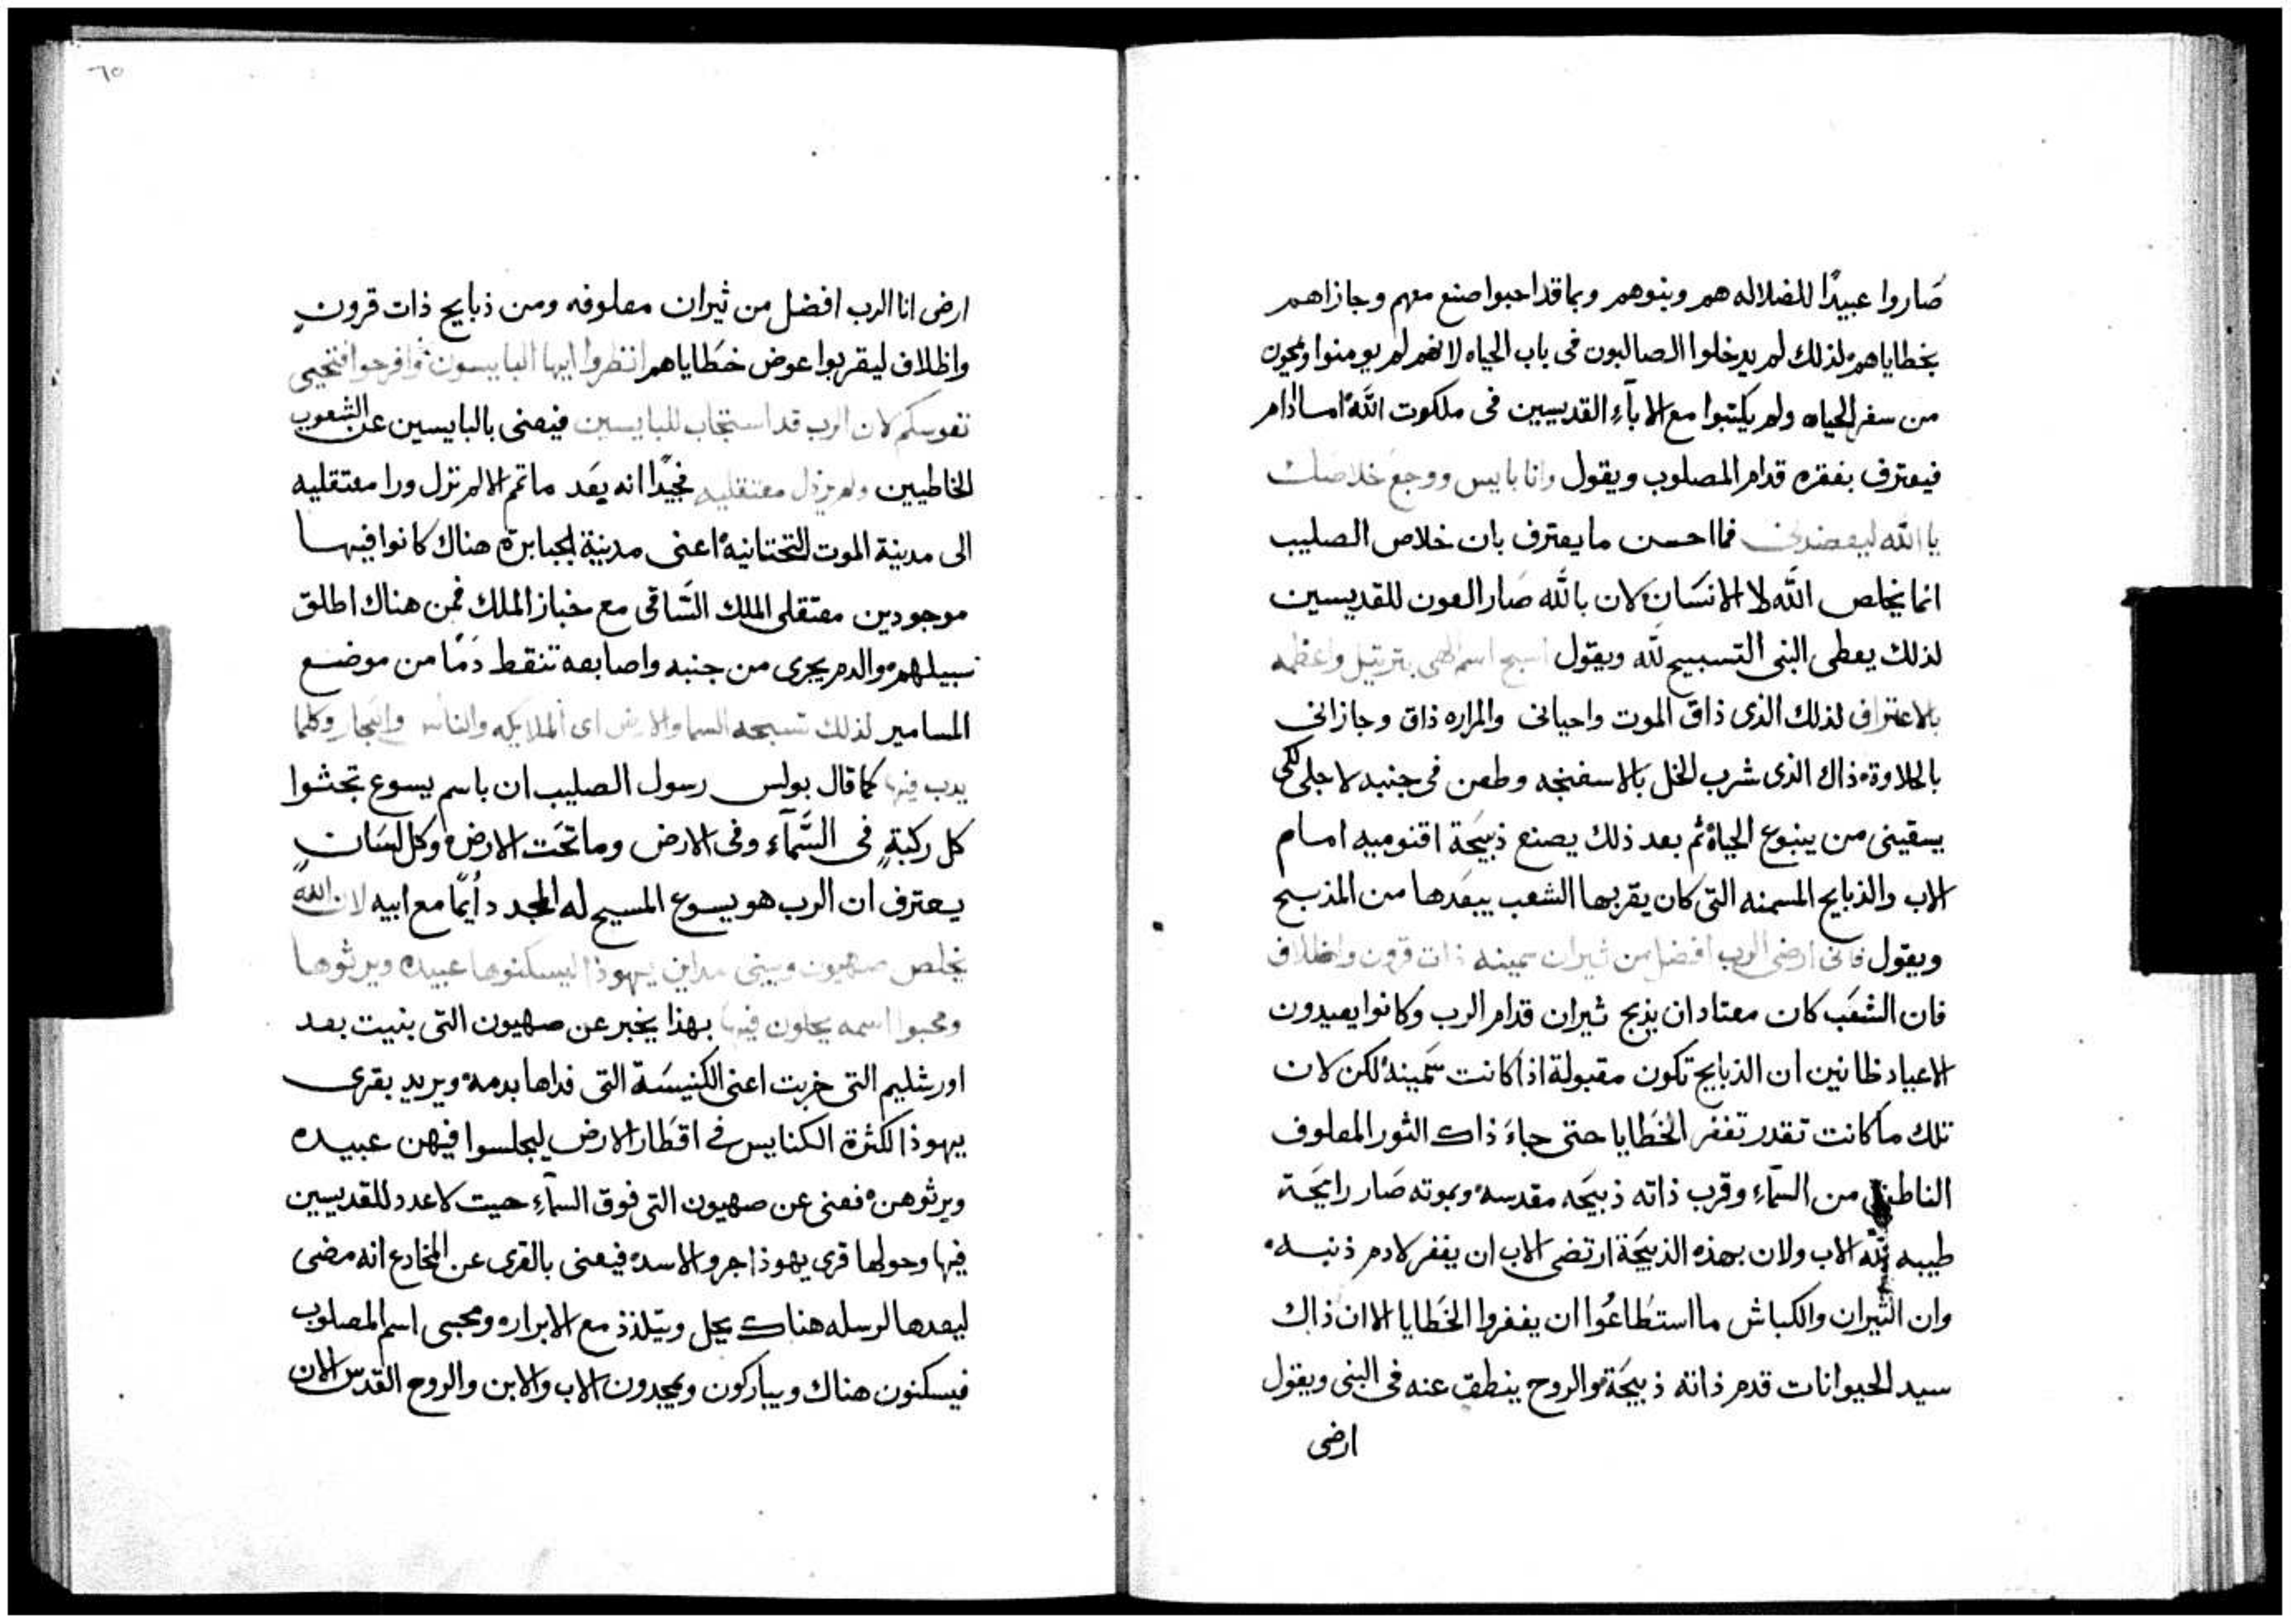 صَاروا عبيدًا للضلاله هم وبنوهم وبما قد احبوا صنع معهم وجازاهم
بخطاياهم لذلك لم يدخلوا الصالبون فى باب الحياه لانهم لم يومنوا ويمحون
من سفر الحياه ولم يكتبوا مع الابآء القديسين فى ملكوت الله اما ادام
فيعترف بفقره قدام المصلوب ويقول وانا بايس ووجع خلاصك
يا الله ليعضدنى فما احسن ما يعترف بان خلاص الصليب
انما يخلص الله لا الانسَان لان بالله صَار العون للقديسين
لذلك يعطى النبى التسبيح لله ويقول اسبح اسم الهى بترتيل واعظمه
بالاعتراف لذلك الذى ذاق الموت واحيانى والمراره ذاق وجازانى
بالحلاوة ذاك الذى شرب الخل بالاسفنجه وطعن فى جنبه لاجلى لكى
يسقينى من ينبوع الحياة ثم بعد ذلك يصنع ذبيحَة اقنوميه امام
الاب والذبايح المسمنه التى كان يقربها الشعب يبعدها من المذبح
ويقول فانى ارضى الرب افضل من ثيران سمينه ذات قرون واظلاف
فان الشعَب كان معتاد ان يذبح ثيران قدام الرب وكانوا يعيدون
الاعياد ظانين ان الذبايح تكون مقبولة اذا كانت سَمينة لكن لان
تلك ما كانت تقدر تغفر الخَطايا حتى جاءَ ذاك الثور المعلوف
الناطق من السمآء وقرب ذاته ذبيحَه مقدسه وبموته صَار رايحَة
طيبه لله الاب ولان بهذه الذبيحَة ارتضى الاب ان يغفر لادم ذنبه
وان الثيران والكباش ما استطَاعُوا ان يغفروا الخَطايا الا ان ذاك
سيد الحيوانات قدم ذاته ذبيحَة والروح ينطق عنه فى النبى ويقول
ارضى
٦٥
ارضى انا الرب افضل من ثيران معلوفه ومن ذبايح ذات قرونٍ
واظلاف ليقربوا عوض خطَاياهم انظروا ايها البايسون وافرحوا فتحيى
نفوسكم لان الرب قد استجاب للبايسين فيعنى بالبايسين عن الشعوب
الخاطيين ولم يرذل معتقليه فجيدًا انه بعَد ما تمم الالم نزل ورا معتقليه
الى مدينة الموت التحتانيه اعنى مدينة الجبابرة هناك كانوا فيها
موجودين معتقلى الملك السَاقى مع خباز الملك فمن هناك اطلق
سبيلهم والدم يجرى من جنبه واصابعه تنقط دمًا من موضع
المسامير لذلك تسبحه السما والارض اى الملايكه والناس والبحار وكلما
يدب فيها كما قال بولس رسول الصليب ان باسم يسوع تجثوا
كل ركبةٍ فى السَّمآء وفى الارض وما تحَت الارض وكل لسَانٍ
يعترف ان الرب هو يسوع المسيح له المجد دايمًا مع ابيه لان الله
يخلص صهيون ويبنى مداين يهوذا ليسكنوها عبيده ويرثوها
ومحبوا اسمه يحلون فيها بهذا يخبر عن صهيون التى بنيت بعد
اورشليم التى خربت اعنى الكنيسَة التى فداها بدمه ويريد بقرى
يهوذا لكثرة الكنايس فى اقطَار الارض ليجلسوا فيهن عبيده
ويرثوهن فعنى عن صهيون التى فوق السمآء حيت لا عدد للقديسين
فيها وحولها قرى يهوذا جرو الاسد فيعنى بالقرى عن المخادع انه مضى
ليعدها لرسله هناك يحل ويتلذذ مع الابرار ومحبى اسم المصلوب
فيسكنون هناك ويباركون ويمجدون الاب والابن والروح القدس الان